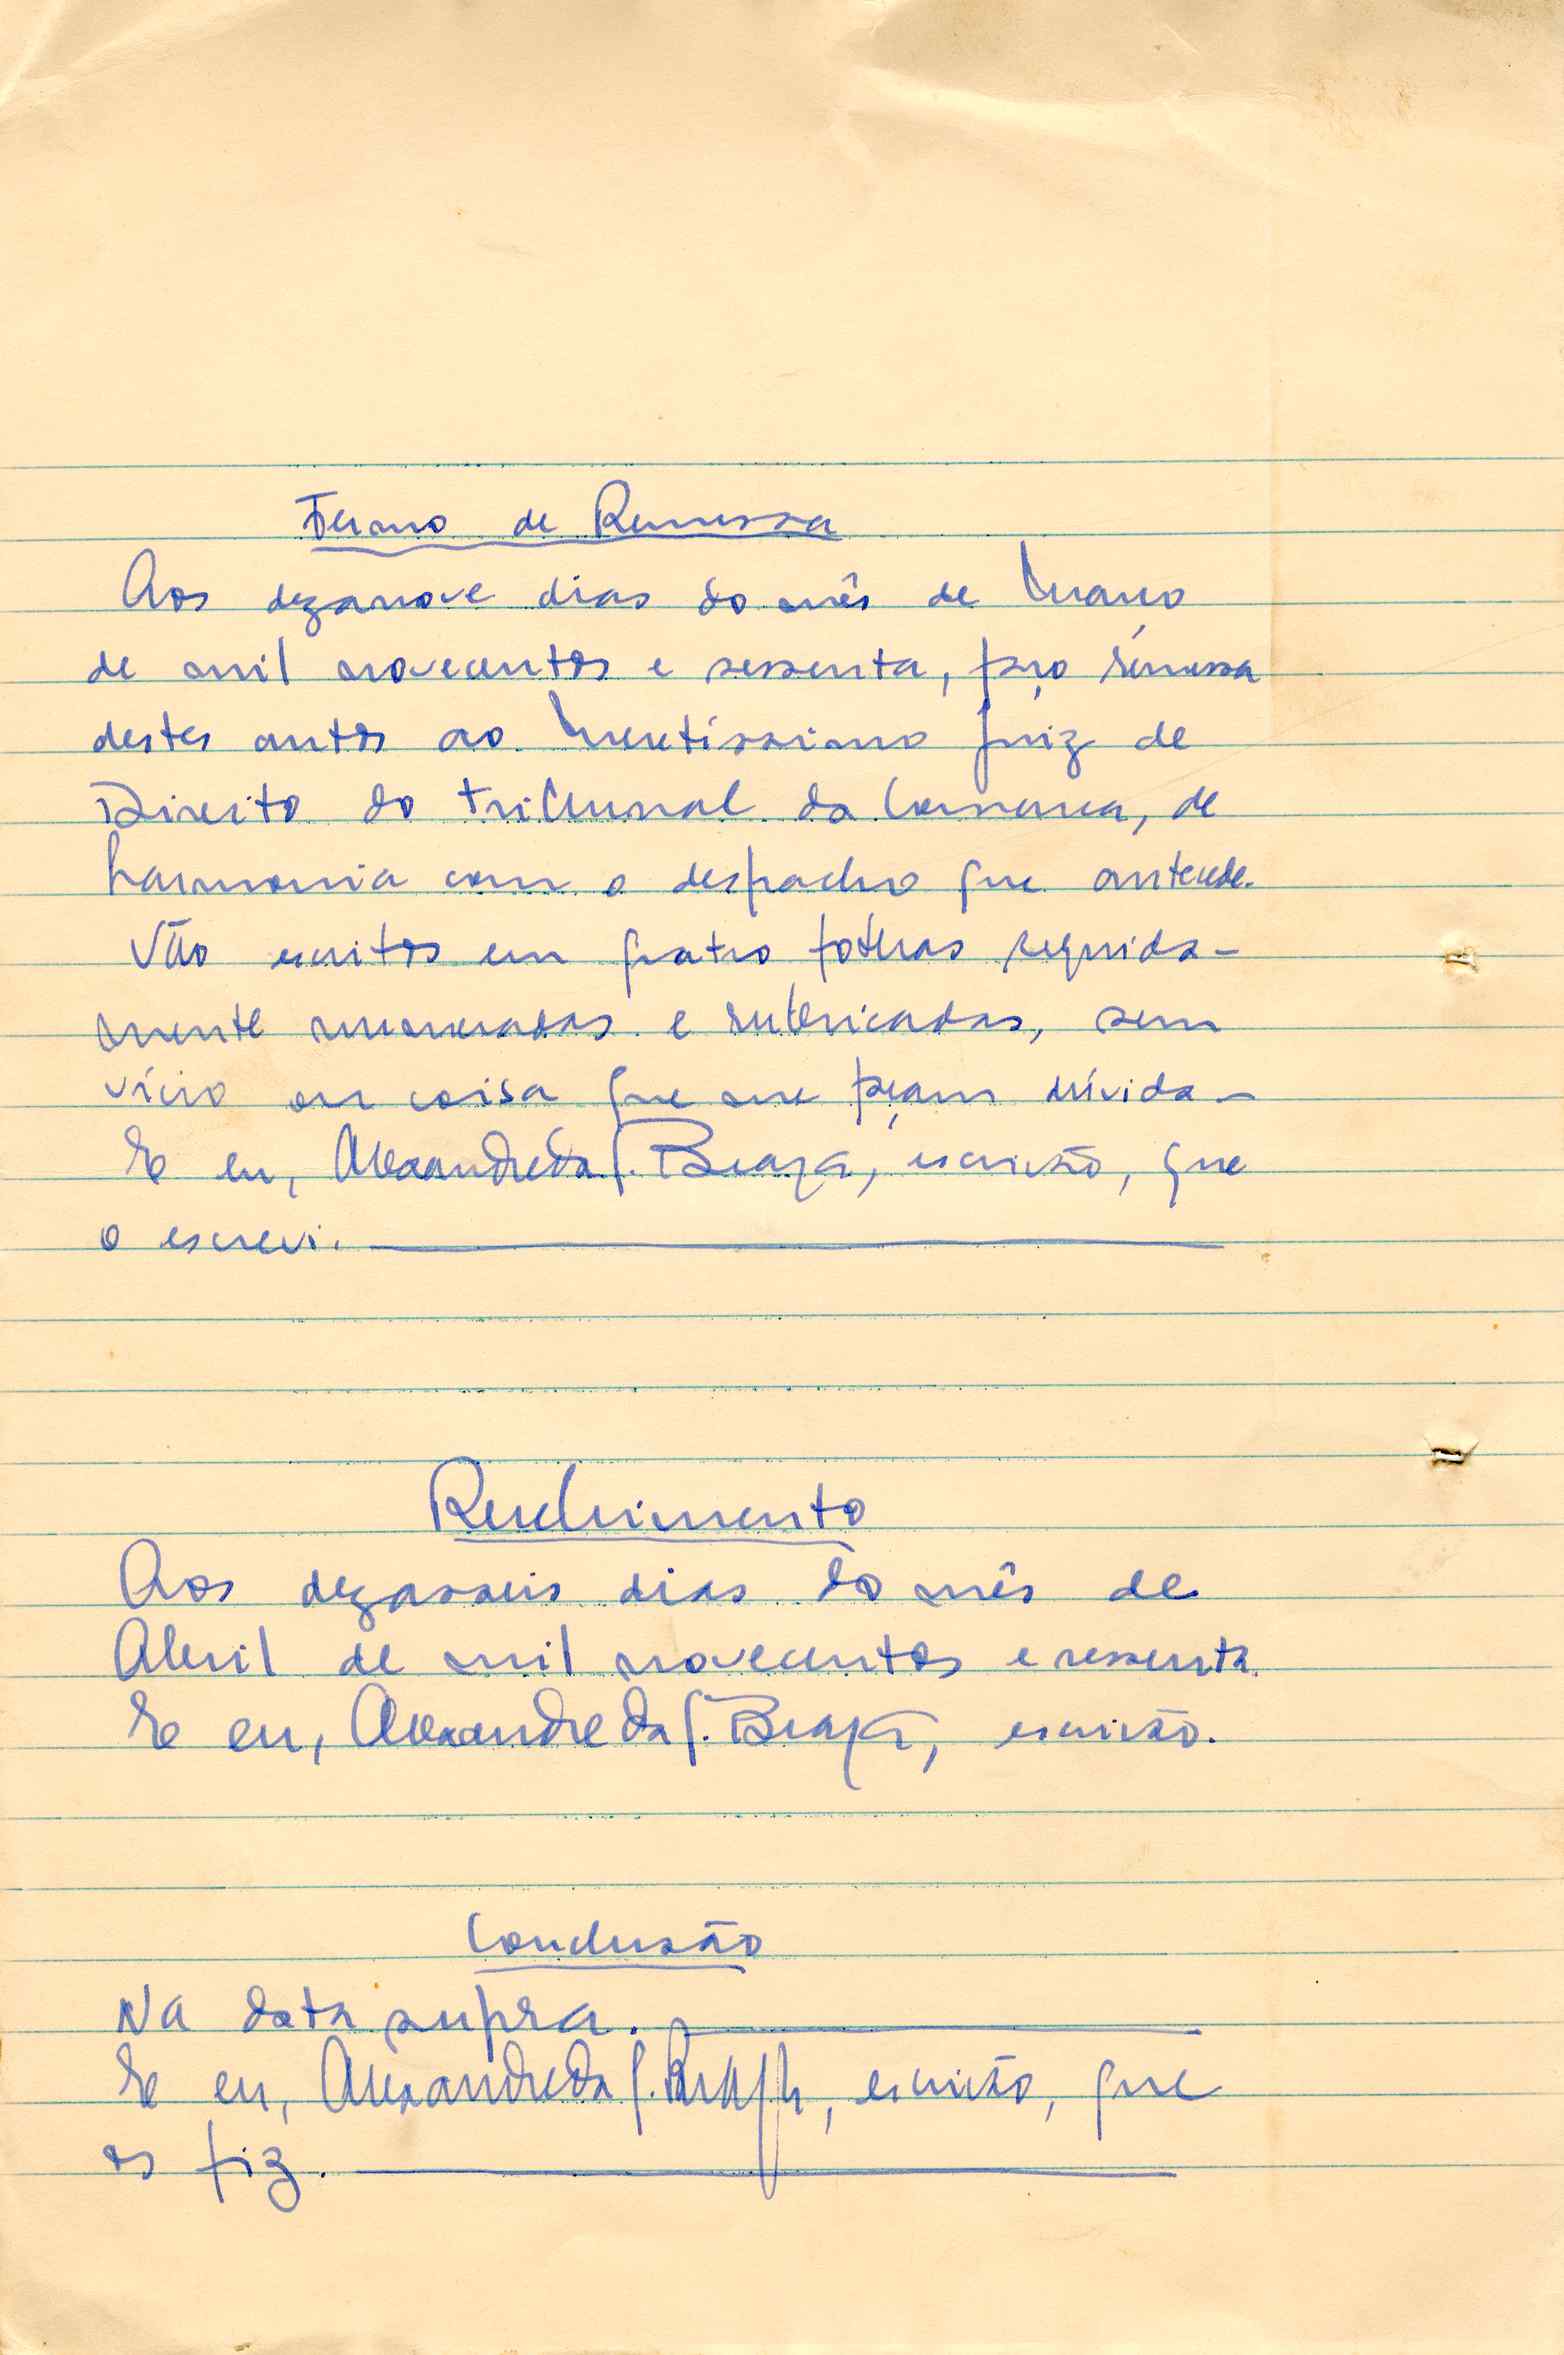 Termo de Remessa
Aos dezanove dias do mês de Março
de mil novecentos e sessenta, faço remessa
destes autos ao Meretíssimo Juiz de
Direito do Tribunal da Comarca, de
harmonia com o despacho que antecede.
Vão escritos em quatro folhas seguida-
mente numeradas e rubricadas, sem
vício ou coisa que me façam dúvida -
E eu, Alexandre da S. Braga, escrivão, que
o escrevi.
Recebimento
Aos dezasseis dias do mês de
Abril de mil novecentos e sessenta.
E eu, Alexandre da S. Braga, escrivão.
Conclusão
Na data supra.
E eu, Alexandre da S. Braga, escrivão, que
os fiz.